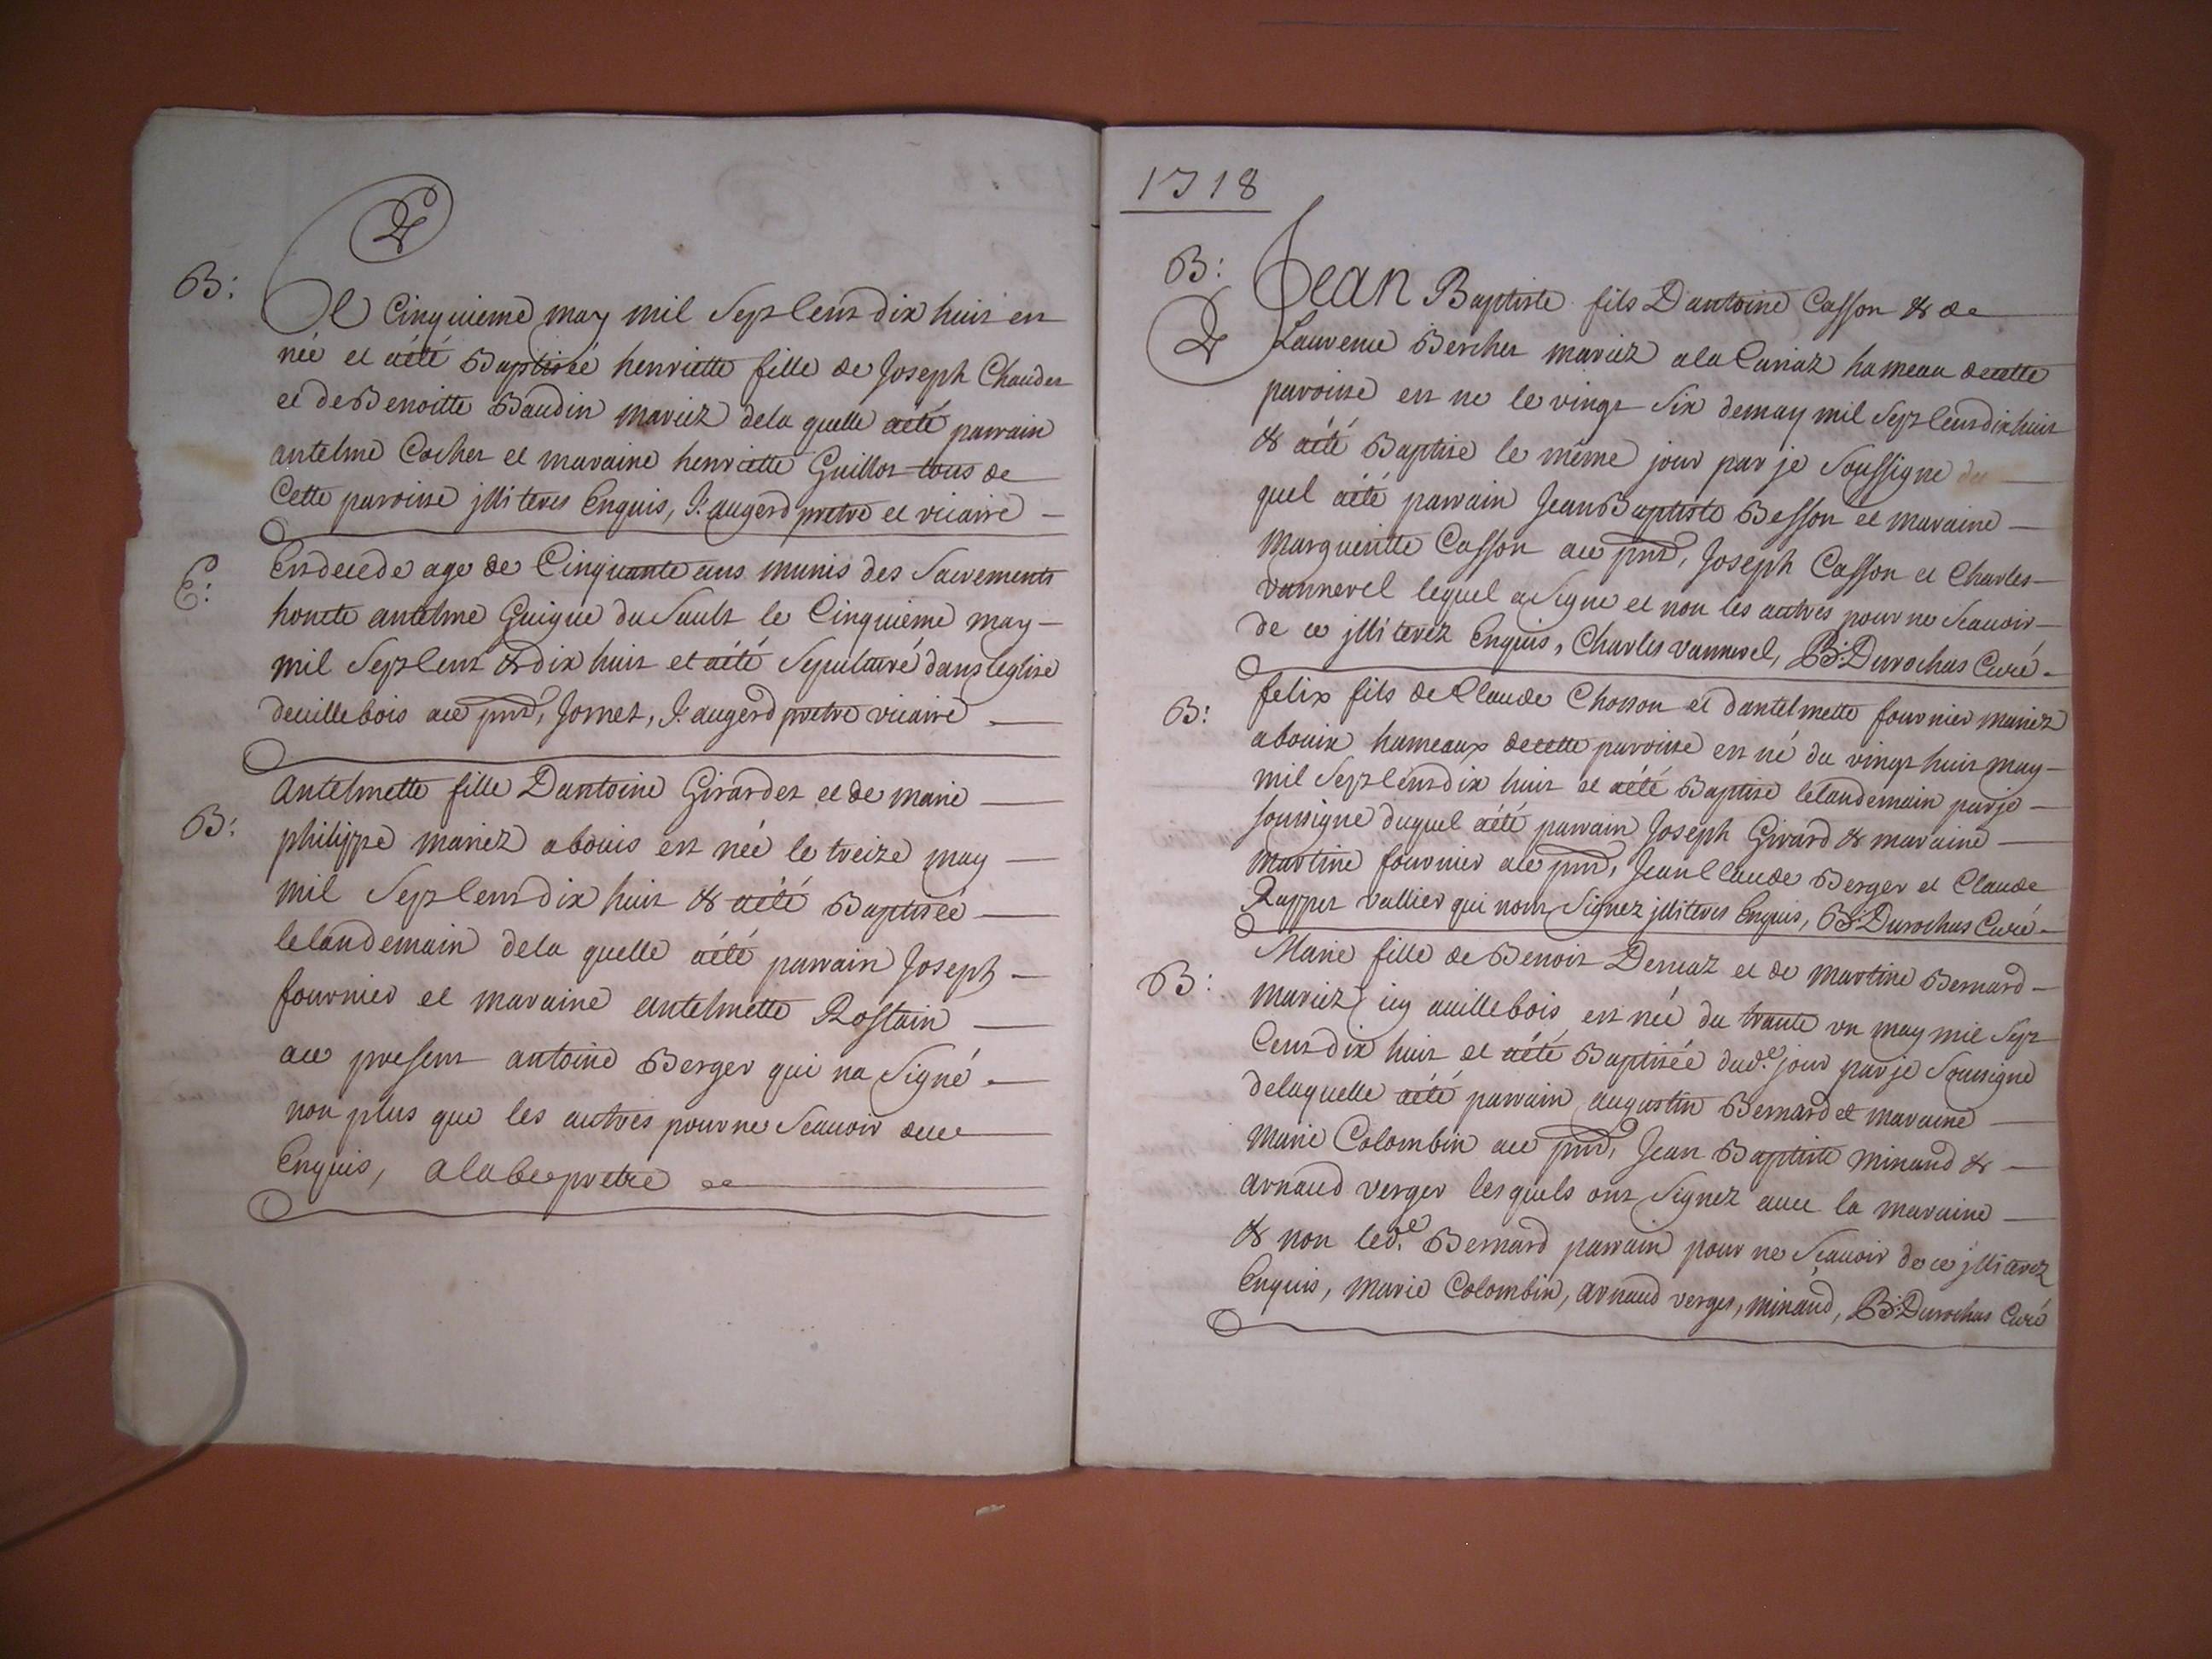 B:
Le Cinquieme may mil Sept Cent dix huit est
née et aété Baptisée henriette fille de Joseph Chaudet
et de Benoitte Baudin mariez dela quelle aété parrain
antelme Cochet et maraine henriette Guillot tous de
Cette paroisse jlliteres Enquis, J: augerd pretre et vicaire
E:
Est decede age de Cinquante ans munis des Sacrements
honete antelme Guigue du Sault le Cinquieme may
mil Sept Cent & dix huit et aété Sepulturé dans leglise
deuillebois aue pnt, Jornet, J: augerd pretre vicaire
B:
Antelmette fille Dantoine Girardet et de marie
philippe mariez abouis est née le treize may
mil Sept Cent dix huit & aété Baptisée
lelandemain dela quelle aété parrain Joseph
fournier et maraine antelmette Rostain
aue present antoine Berger qui na Signé
non plus que les autres pour ne Scauoir dece
Enquis, alabe pretre
1718
B:
Jean Baptiste fils Dantoine Casson & de
Laurence Bercher mariez ala Carriaz hameau decette
paroisse est ne le vingt Six demay mil Sept Cent dix huit
& aété Baptise le même jour par je Soussigne du
quel aété parrain Jean Baptiste Besson et maraine
Margueritte Casson aue pnt, Joseph Casson et Charles
Vannerel lequel a Signe et non les autres pour ne Scauoir
de ce jlliterez Enquis, Charles Vannerel, B: Durochas Curé
B:
felix fils de Claude Chosson et dantelmette fournier mariez
abouix hameaux decette paroisse est né du vingt huit may
mil Sept Cent dix huit et aété Baptise lelandemain par je
soussigne duquel aété parrain Joseph Girard & maraine
Martine fournier aue pnt, Jean Claude Berger et Claude
Rappet Vallier qui nont Signez jlliteres Enquis, B: Durochas Curé
B:
Marie fille de Benoit Demaz et de Martine Bernard
mariez icy auillebois est née du trante vn may mil Sept
Cent dix huit et aété Baptisée dud.e jour par je Soussigne
delaquelle aété parrain augustin Bernard et maraine
Marie Colombin aue pnt, Jean Baptiste minand &
arnaud verger lesquels ont Signez auec la maraine
& non led.e Bernard parrain pour ne Scauoir de ce jlliarez
Enquis, Marie Colombin, arnaud verger, minand, B: Durochas Curé